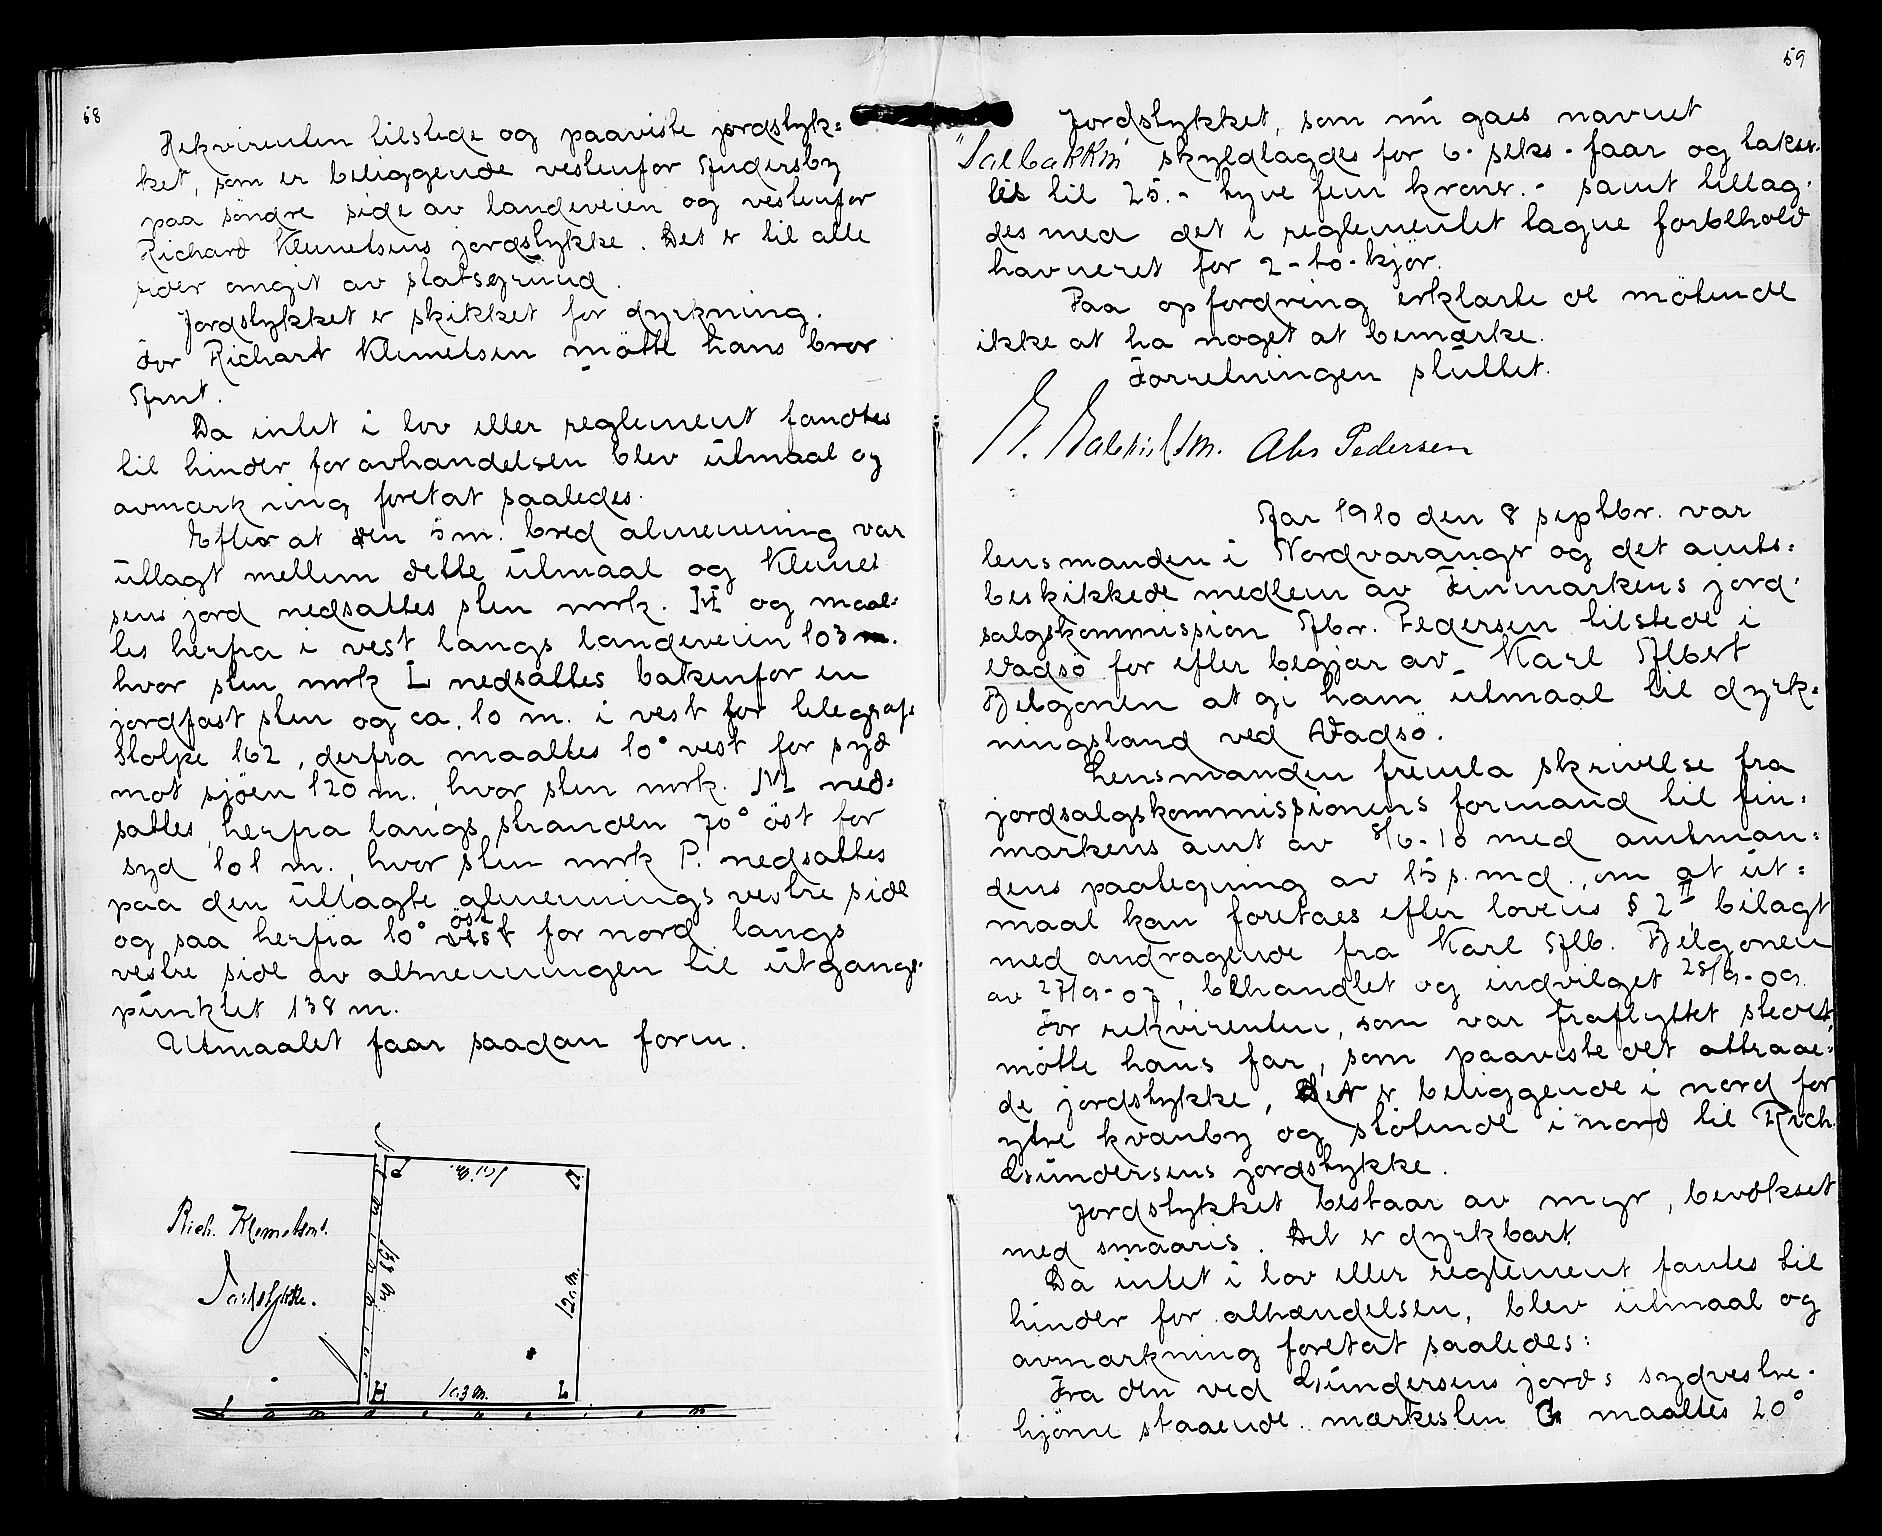 58
Rekvirenten tilstede og paaviste jordstyk=
ket, som er beliggende vestenfor Andersby
paa söndre side av landeveien og vestenfor
Richard Klemetsens jordstykke. Det er til alle
sider omgit av statsgrund.
Jordstykket er skikket for dyrkning.
For Richard Klemetsen mötte hans bror
Amt.
Da intet i lov eller reglement fandtes
til hinder for avhandelsen blev utmaal og
avmærkning foretat saaledes.
Efter at den 5 m. bred almenning var
utlagt mellem dette utmaal og Klemet
sens jord nedsattes sten mrk. H og maal=
tes herfra i vest langs landeveien 103 m.
hvor sten mrk L nedsattes bakenfor en
jordfast sten og ca. 10 m. i vest for telegraf
stolpe 162, derfra maaltes 10° vest for syd
mot sjöen 120 m., hvor sten mrk. N ned=
sattes, herfra langs stranden 70° öst for
syd 101 m., hvor sten mrk P. nedsattes
paa den utlagte almennings vestre side
öst
og saa herfra 10° vest for nord langs
vestre side av almenningen til utgangs=
punktet 138 m.
Utmaalet faar saadan form.
N
P 101 m. N
Rich. Klemetsens
Jordstykke.
138 m.
120 m.
H 103 m. L
59
Jordstykket, som nu gaes navnet
"Solbakken" skyldlagdes for 6 - seks - öre og takser=
tes til 25.- tyve fem kroner. - samt tillag=
des med det i reglementet tagne forbehold
havneret for 2 - to - kjör.
Paa opfordring erklærte de mötende
ikke at ha noget at bemærke.
Forretningen sluttet.
E. Gabrielsen. Abr Pedersen
Aar 1910 den 8 septbr. var
lensmanden i Nordvaranger og det amts=
beskikkede medlem av Finmarkens jord=
salgskommission Abr. Pedersen tilstede i
Vadsö for efter begjær av Karl Albert
Betgonen at gi ham utmaal til dyrk=
ningsland ved Vadsö.
Lensmanden fremla skrivelse fra
jordsalgskommissionens formand til Fin=
markens amt av 8/6-10 med amtman=
dens paategning av 15 s. md., om at ut=
maal kan foretaes efter lovens § 2 II bilagt
med andragende fra Karl Alb. Betgonen
av 27/9-07, behandlet og indvilget 28/9-09.
For rekvirenten, som var fraflyttet stedet,
mötte hans far, som paaviste det attraae=
de jordstykke, Det er beliggende i nord for
ytre kvanby og stötende i nord til Rich.
Gundersens jordstykke.
Jordstykket bestaar av myr, bevokset
med smaaris. Det er dyrkbart.
Da intet i lov eller reglement fantes til
hinder for avhændelsen, blev utmaal og
avmærkning foretat saaledes:
Fra den ved Gundersens jords sydvestre
hjörne staaende mærkesten G maaltes 20°